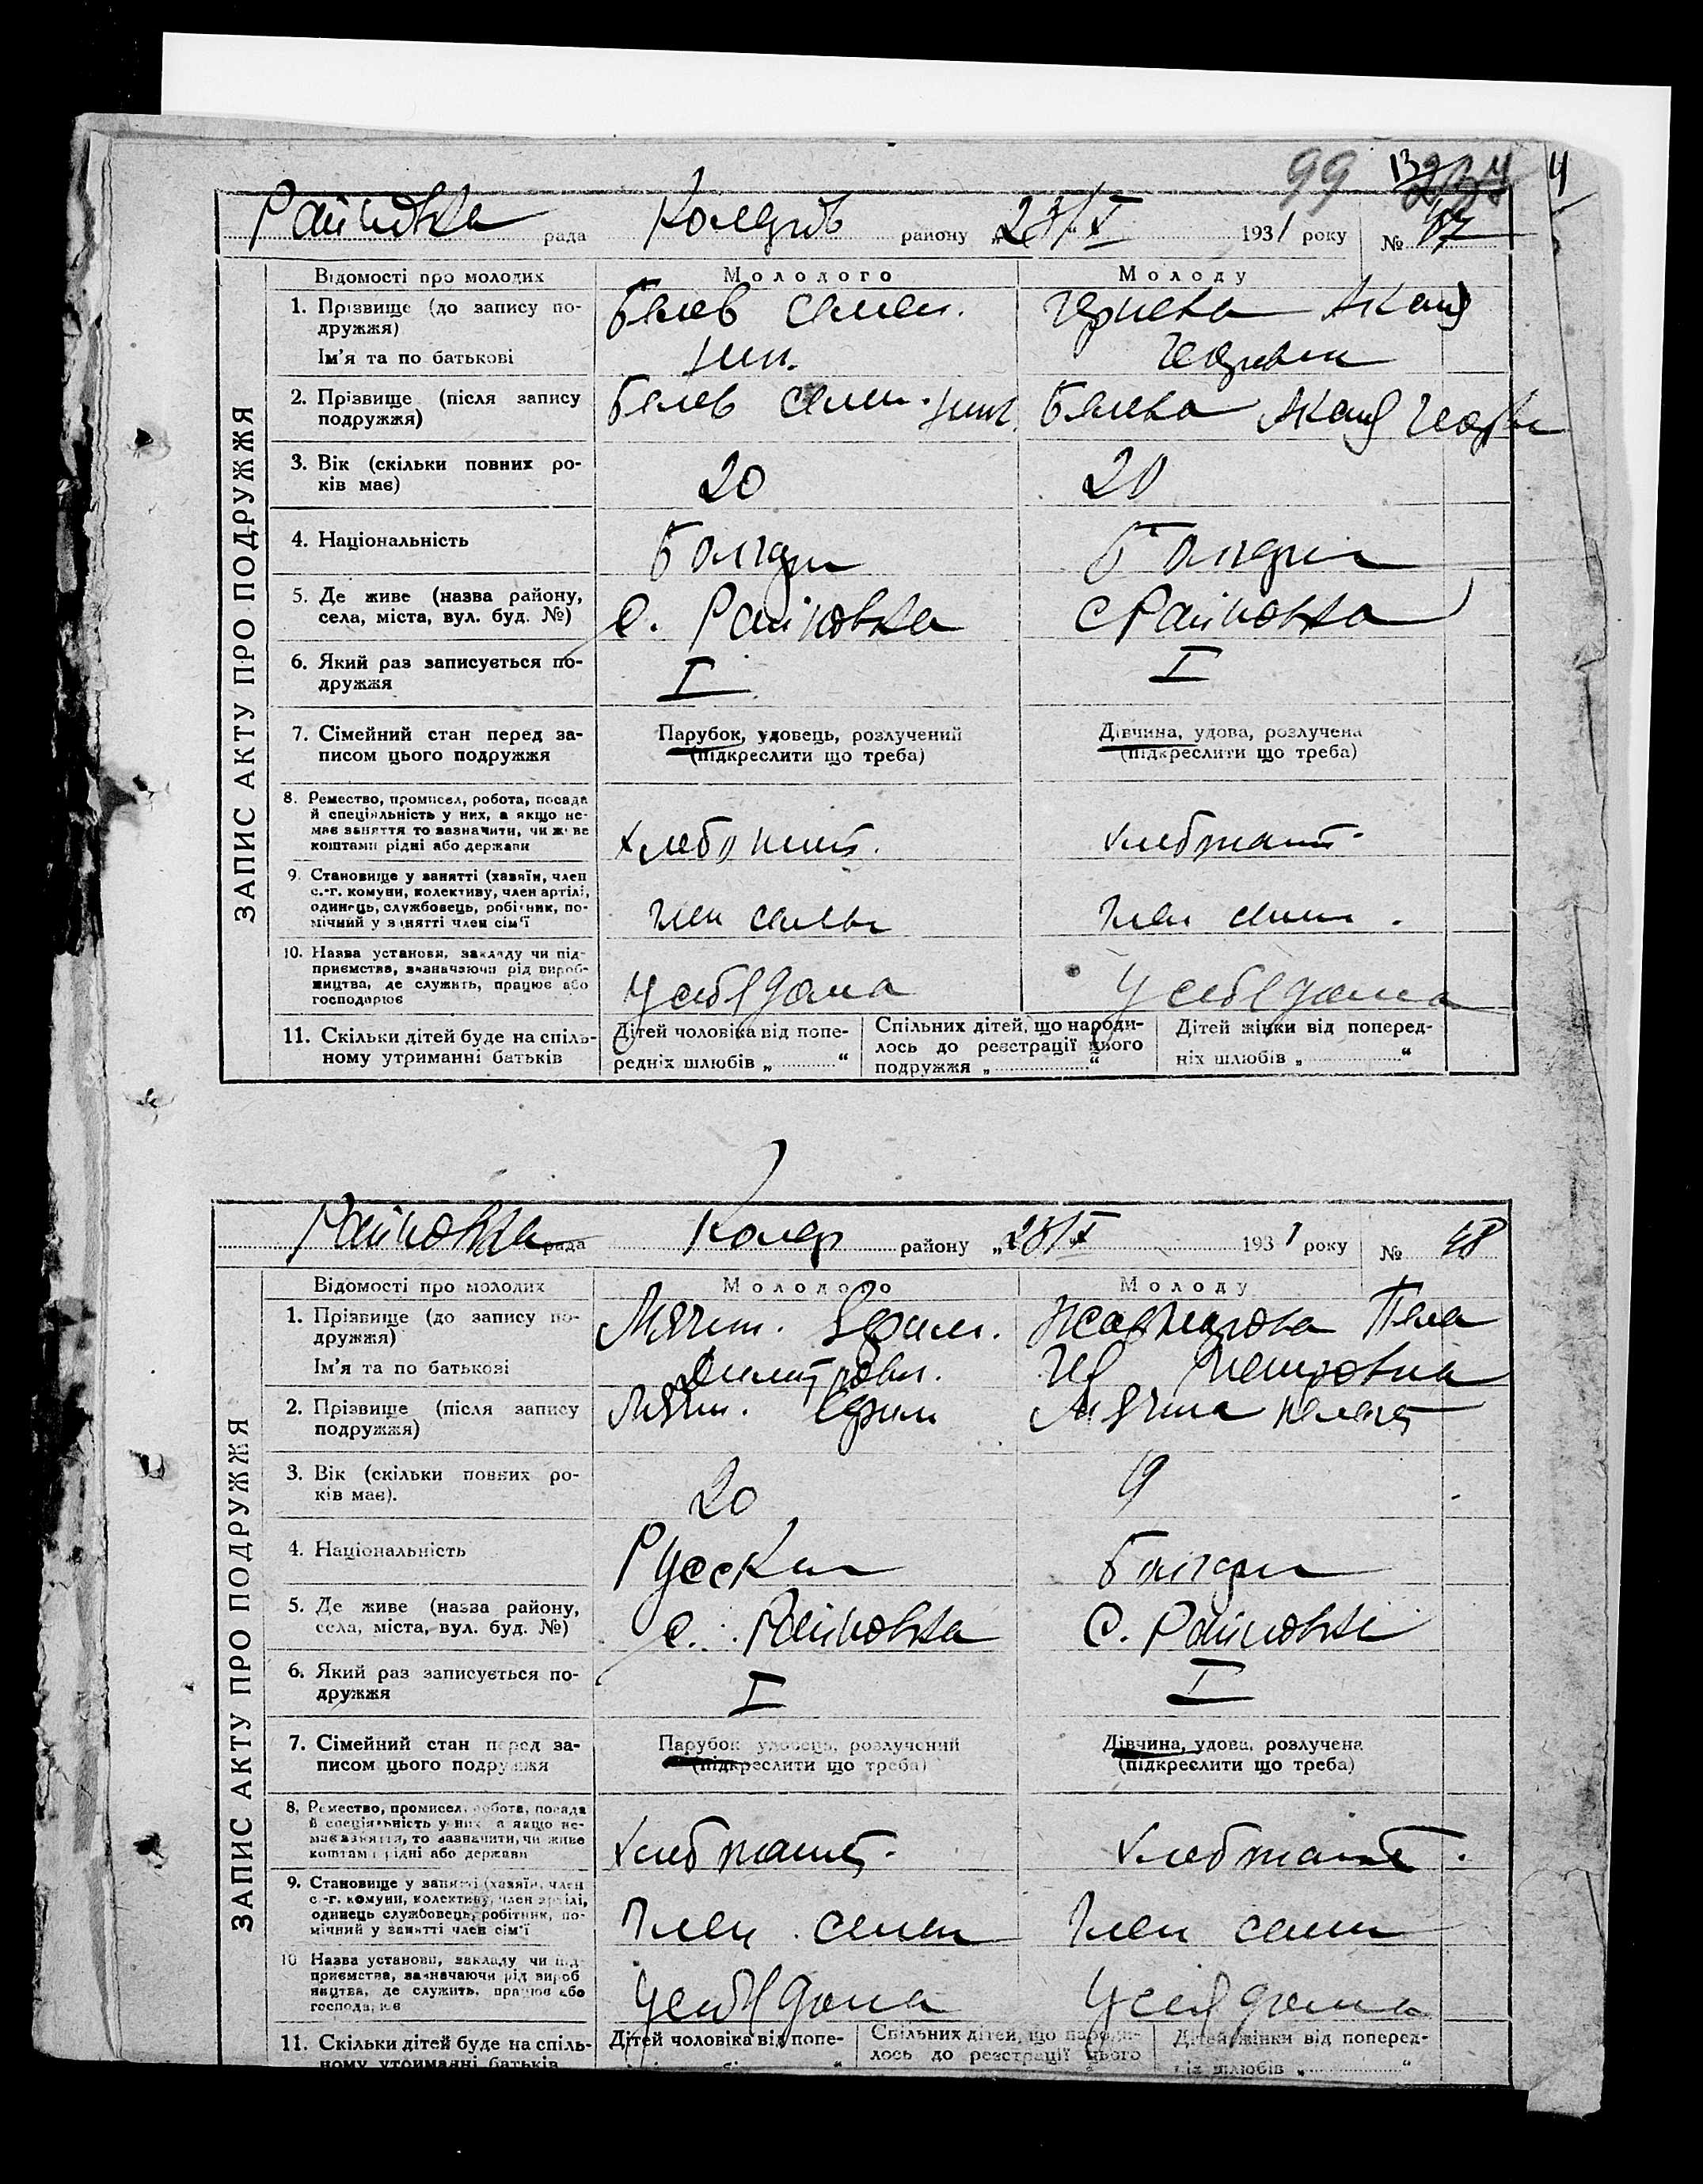 99
4
Райновка рада району „28/X 1931 року № 47
ЗАПИС АКТУ ПРО ПОДРУЖЖЯ
Відомості про молодих Молодого Молоду
1. Прізвище (до запису по-
дружжя)
Белев Семен.
Ім'я та по батькові
2. Прізвище (після запису
подружжя)
Белев Семен. Белева
3. Вік (скільки повних ро-
ків має)
20 20
4. Національність Болгари Болгари
5. Де живе (назва району,
села, міста, вул. буд. №)
с. Райновка с Райновка
6. Який раз записується по-
дружжя
I I
7. Сімейний стан перед за-
писом цього подружжя
Парубок, удовець, розлучений
(підкреслити що треба)
Дівчина, удова, розлучена
(підкреслити що треба)
8. Ремество, промисел, робота, посада
й спеціяльність у них, а якщо не-
має заняття то зазначити, чи живе
коштами рідні або держави
9. Становище у занятті (хазяїн, член
с.-г. комуни, колективу, член артілі,
одинець, службовець, робітник, по-
мічний у занятті член сім'ї
член семьи член семи.
10. Назва установи, закладу чи під-
приємства, зазначаючи рід вироб-
ництва, де служить, працює або
господарює
У себя дома У себя дома
11. Скільки дітей буде на спіль-
ному утриманні батьків
Дітей чоловіка від попе-
редніх шлюбів „ “
Спільних дітей, що народи-
лось до реєстрації цього
подружжя „ “
Дітей жінки від поперед-
ніх шлюбів „ “
Райновка рада Колар району „28/X 1931 року № 48
ЗАПИС АКТУ ПРО ПОДРУЖЖЯ
Відомості про молодих Молодого Молоду
1. Прізвище (до запису по-
дружжя)
Ім'я та по батькові
2. Прізвище (після запису
подружжя)
Ефим Мячина
3. Вік (скільки повних ро-
ків має).
20 19
4. Національність Русски Болгари
5. Де живе (назва району,
села, міста, вул. буд. №)
с. Райновка С. Райновка
6. Який раз записується по-
дружжя
I I
7. Сімейний стан перед за-
писом цього подружжя
Парубок удовець, розлучений
(підкреслити що треба)
Дівчина, удова, розлучена
(підкреслити що треба)
8. Ремество, промисел, робота, посада
й спеціяльність у них а якщо не-
має заняття, то зазначити, чи живе
коштами рідні або держави
Хлебпашец. Хлебпашец.
9. Становище у занятті (хазяїн, член
с.-г. комуни, колективу, член артілі,
одинець службовець, робітник, по-
мічний у занятті член сім'ї
Член семи Член семи
10 Назва установи, закладу чи під-
приємства, зазначаючи рід вироб
ництва, де служить, працює або
господарює
У себя дома У себя дома
11. Скільки дітей буде на спіль-
ному утриманні батьків
Дітей чоловіка від попе-
Спільних дітей, що народи-
лось до реєстрації цього
Дітей жінки від поперед-
ніх шлюбів „ “